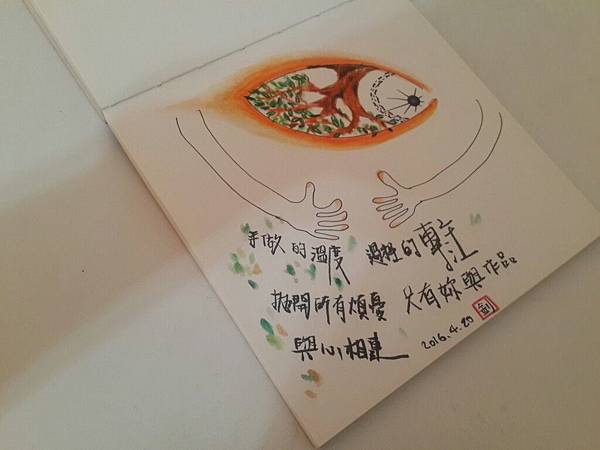 手做的溫度 過程的專注
拋開所有煩憂 只有妳與作品
與心相連
2016.4.20